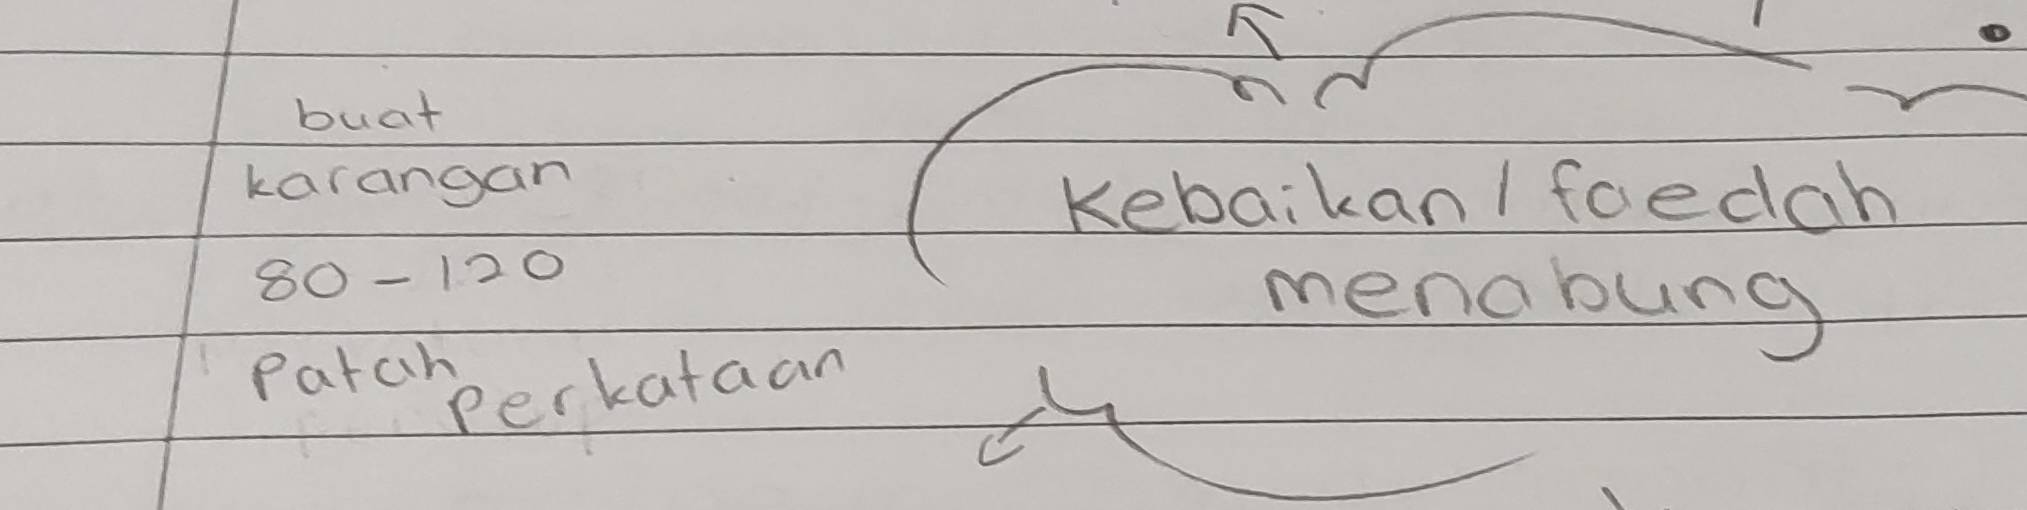 buat
karangan
80-120
Patah perkataan
Kebaikan / faedah
menabung